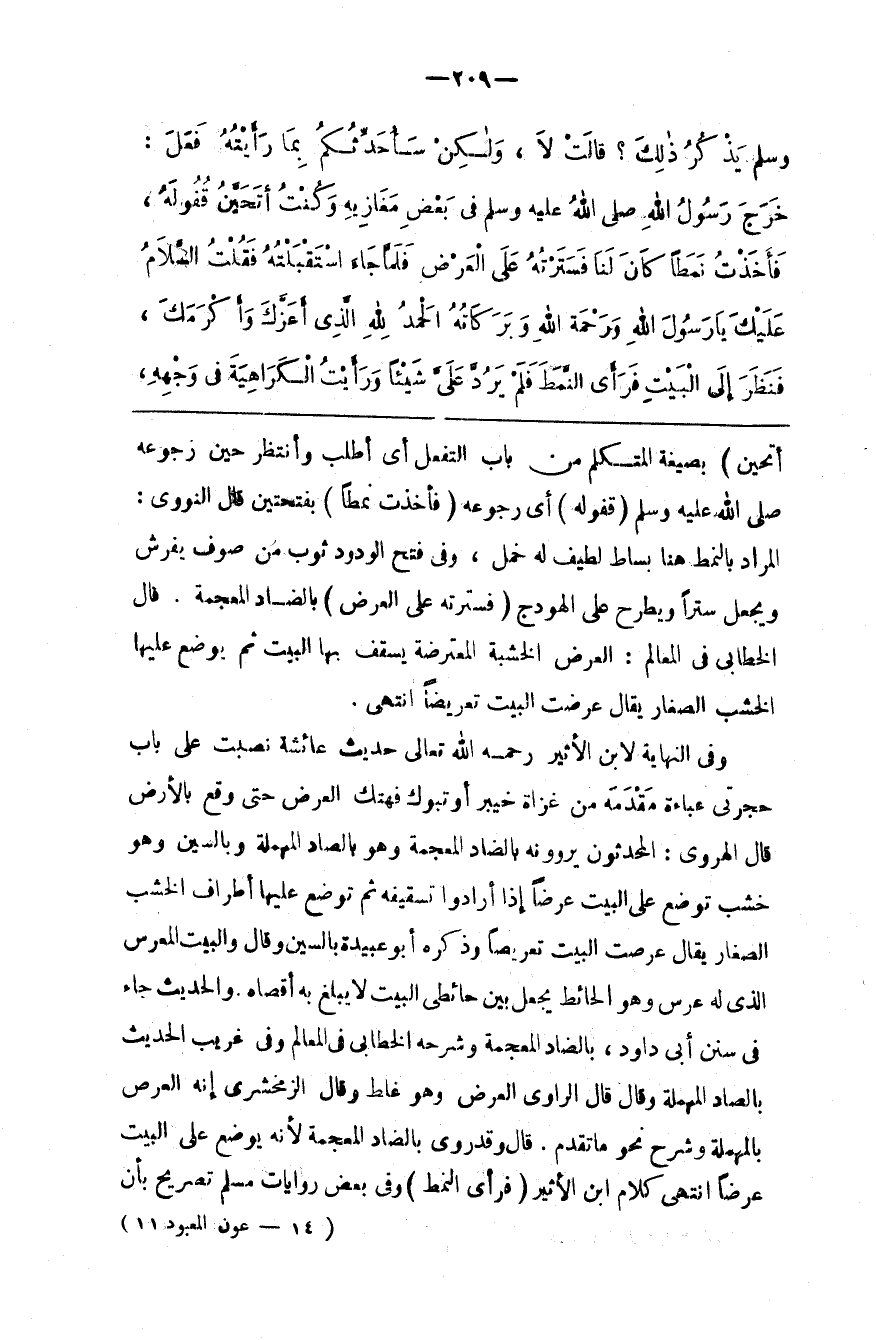 —٢٠٩—
وسلم يَذْكُرُ ذٰلِكَ ؟ قالَتْ لاَ ، وَلٰكِنْ سَأُحَدِّثُكُمُ بِمَا رَأَيْتُهُ فَعَلَ :
خَرَجَ رَسُولُ اللهِ صلى اللهُ عليه وسلم فى بَعْضِ مَغَازِيهِ وَكُنْتُ أَتَحَيَّنُ قُفُولَهُ ،
فَأَخَذْتُ نَمَطاً كَانَ لَنَا فَسَتَرْتُهُ عَلَى الْعَرْضِ فَلَمَّا جَاء اسْتَقْبَلْتُهُ فَقُلْتُ السَّلاَمُ
عَلَيْكَ يَارَسُولَ اللهِ وَرَحْمَة اللهِ وَبَرَكَاتُهُ الْحَمدُ لِلهِ الَّذِى أَعَزَّكَ وَأَكْرَمَكَ ،
فَنَظَرَ إِلَى الْبَيْتِ فَرَأَى النَّمَطَ فَلَمْ يَرُدَّ عَلَىَّ شَيْئاً وَرَأَيْتُ الْكَرَاهِيَةَ فى وَجْهِهِ ،
أتحين ) بصيغة المتكلم من باب التفعل أى أطلب وأنتظر حين زجوعه
صلى الله عليه وسلم ( قفوله ) أى رجوعه ( فأخذت نمطاً ) بفتحتين قال النووى :
المراد بالنمط هنا بساط لطيف له خمل ، وفى فتح الودود ثوب من صوف يفرش
ويجعل ستراً ويطرح على الهودج ( فسترته على العرض ) بالضاد المعجمة . قال
الخطابى فى المعالم : العرض الخشبة المعترضة يسقف بها البيت ثم يوضع عليها
الخشب الصغار يقال عرضت البيت تعريضاً انتهى .
وفى النهاية لابن الأثير رحمه الله تعالى حديث عائشة نصبت على باب
حجرتى عباءة مَقْدَمَه من غزاة خيبر أو تبوك فهتك العرض حتى وقع بالأرض
قال الهروى : المحدثون يروونه بالضاد المعجمة وهو بالصاد المهملة وبالسين وهو
خشب توضع على البيت عرضاً إذا أرادوا تسقيفه ثم توضع عليها أطراف الخشب
الصغار يقال عرصت البيت تعريصاً وذكره أبو عبيدة بالسين وقال والبيت المعرس
الذى له عرس وهو الحائط يجعل بين حائطى البيت لا يبلغ به أقصاه . والحديث جاء
فى سنن أبى داود ، بالضاد المعجمة وشرحه الخطابى فى المعالم وفى غريب الحديث
بالصاد المهملة وقال قال الراوى العرض وهو غلط وقال الزمخشرى إنه العرص
بالمهملة وشرح نحو ماتقدم . قال وقد روى بالضاد المعجمة لأنه يوضع على البيت
عرضاً انتهى كلام ابن الأثير ( فرأى النمط ) وفى بعض روايات مسلم تصريح بأن
( ١٤ — عون المعبود ١١ )